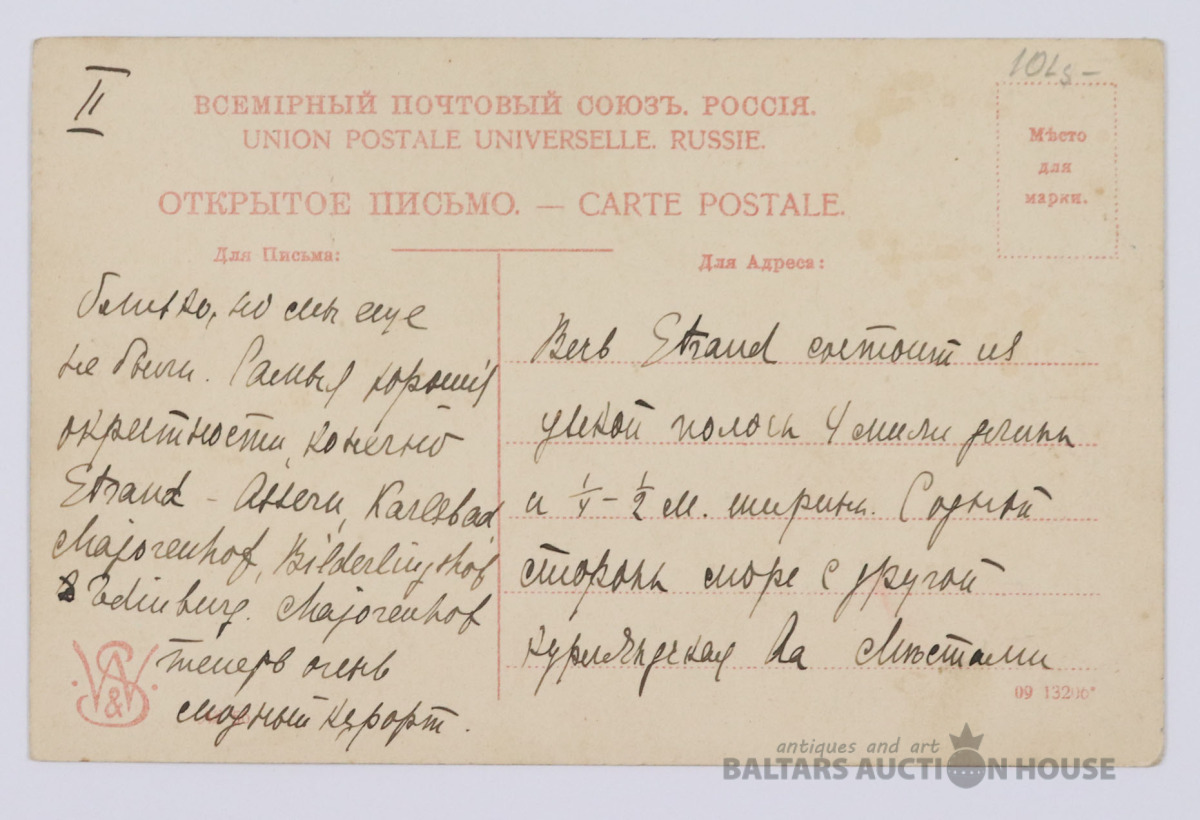 II
10Ls-
ВСЕМІРНЫЙ ПОЧТОВЫЙ СОЮЗЪ. РОССІЯ.
UNION POSTALE UNIVERSELLE. RUSSIE.
Мѣсто
для
марки.
ОТКРЫТОЕ ПИСЬМО. — CARTE POSTALE.
Для Письма:
близко, но мы еще
не были. Самыя хорошія
окрестности, конечно
Strand - Assern, Karlsbad
Majorenhof, Bilderlingshof
Edinburg. Majorenhof
теперь очень
модный курорт.
W&S
Для Адреса:
Весь Strand состоит из
узкой полосы 4 мили длины
и 1/4 - 1/2 м. ширины. С одной
стороны море с другой
Курляндская Аа Мѣстами
09 13206*
antiques and art
BALTARS AUCTION HOUSE